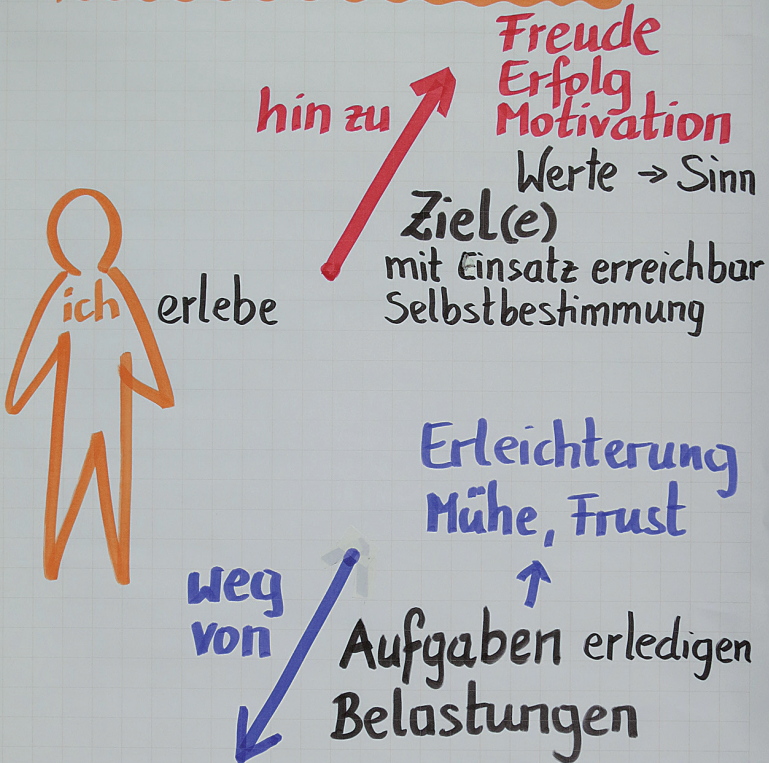 Freude
Erfolg
hin zu
Motivation
Werte → Sinn
Ziel(e)
mit Einsatz erreichbar
ich erlebe
Selbstbestimmung
Erleichterung
Mühe, Frust
weg
von
Aufgaben erledigen
Belastungen